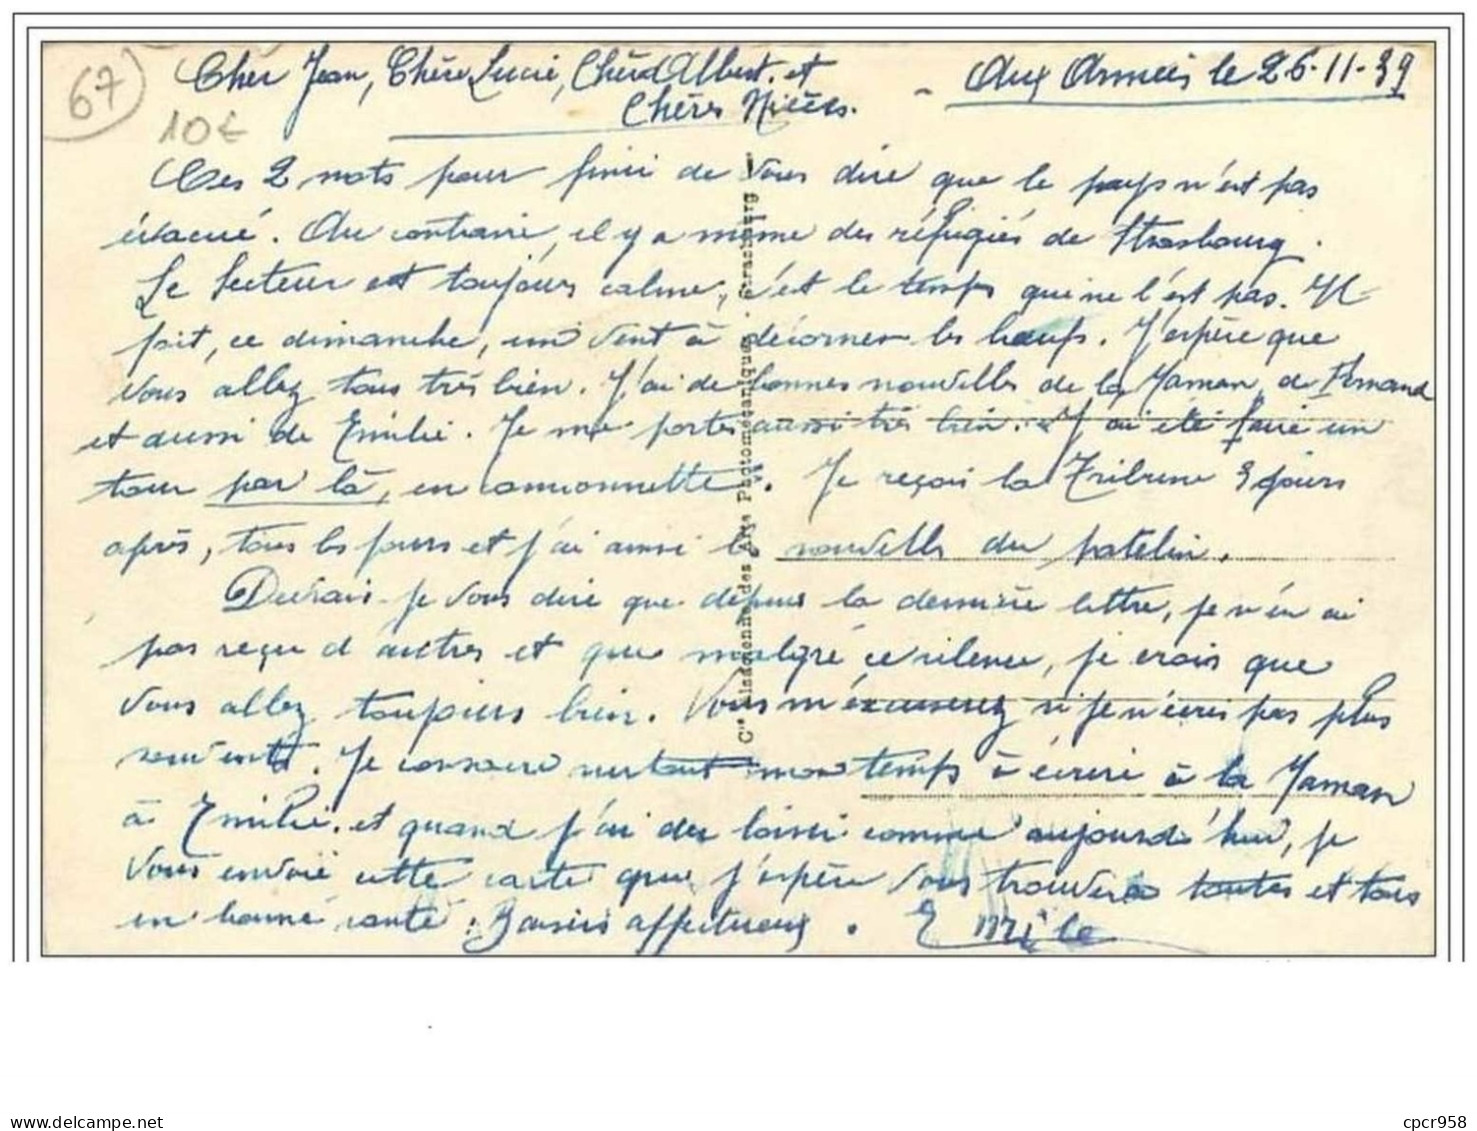 67
10€
Cher Jean, Chère Lucie, Cher Albert et
Chères Nièces.
Aux Armées le 26-11-39
Ces 2 mots pour finir de vous dire que le pays n'est pas
évacué. Au contraire, il y a même des réfugiés de Strasbourg.
Le secteur est toujours calme, c'est le temps qui ne l'est pas. Il
fait, ce dimanche, un vent à décorner les bœufs. J'espère que
vous allez tous très bien. J'ai de bonnes nouvelles de la Maman, de Fernand
et aussi de Emilie. Je me porte aussi très bien. J'ai été faire un
tour par là, en camionnette. Je reçois la Tribune 3 jours
après, tous les jours et j'ai ainsi les nouvelles du patelin.
Devrais-je vous dire que depuis la dernière lettre, je n'en ai
pas reçu d'autres et que malgré ce silence, je crois que
vous allez toujours bien. Vous m'excuserez si je n'écris pas plus
souvent. Je consacre surtout mon temps à écrire à la Maman
à Emilie, et quand j'ai du loisir comme aujourd'hui, je
vous envoie cette carte que j'espère vous trouvera toutes et tous
en bonne santé. Baisers affectueux. Emile
Cie Alsacienne des Arts Photomécaniques - Strasbourg
cpcr958